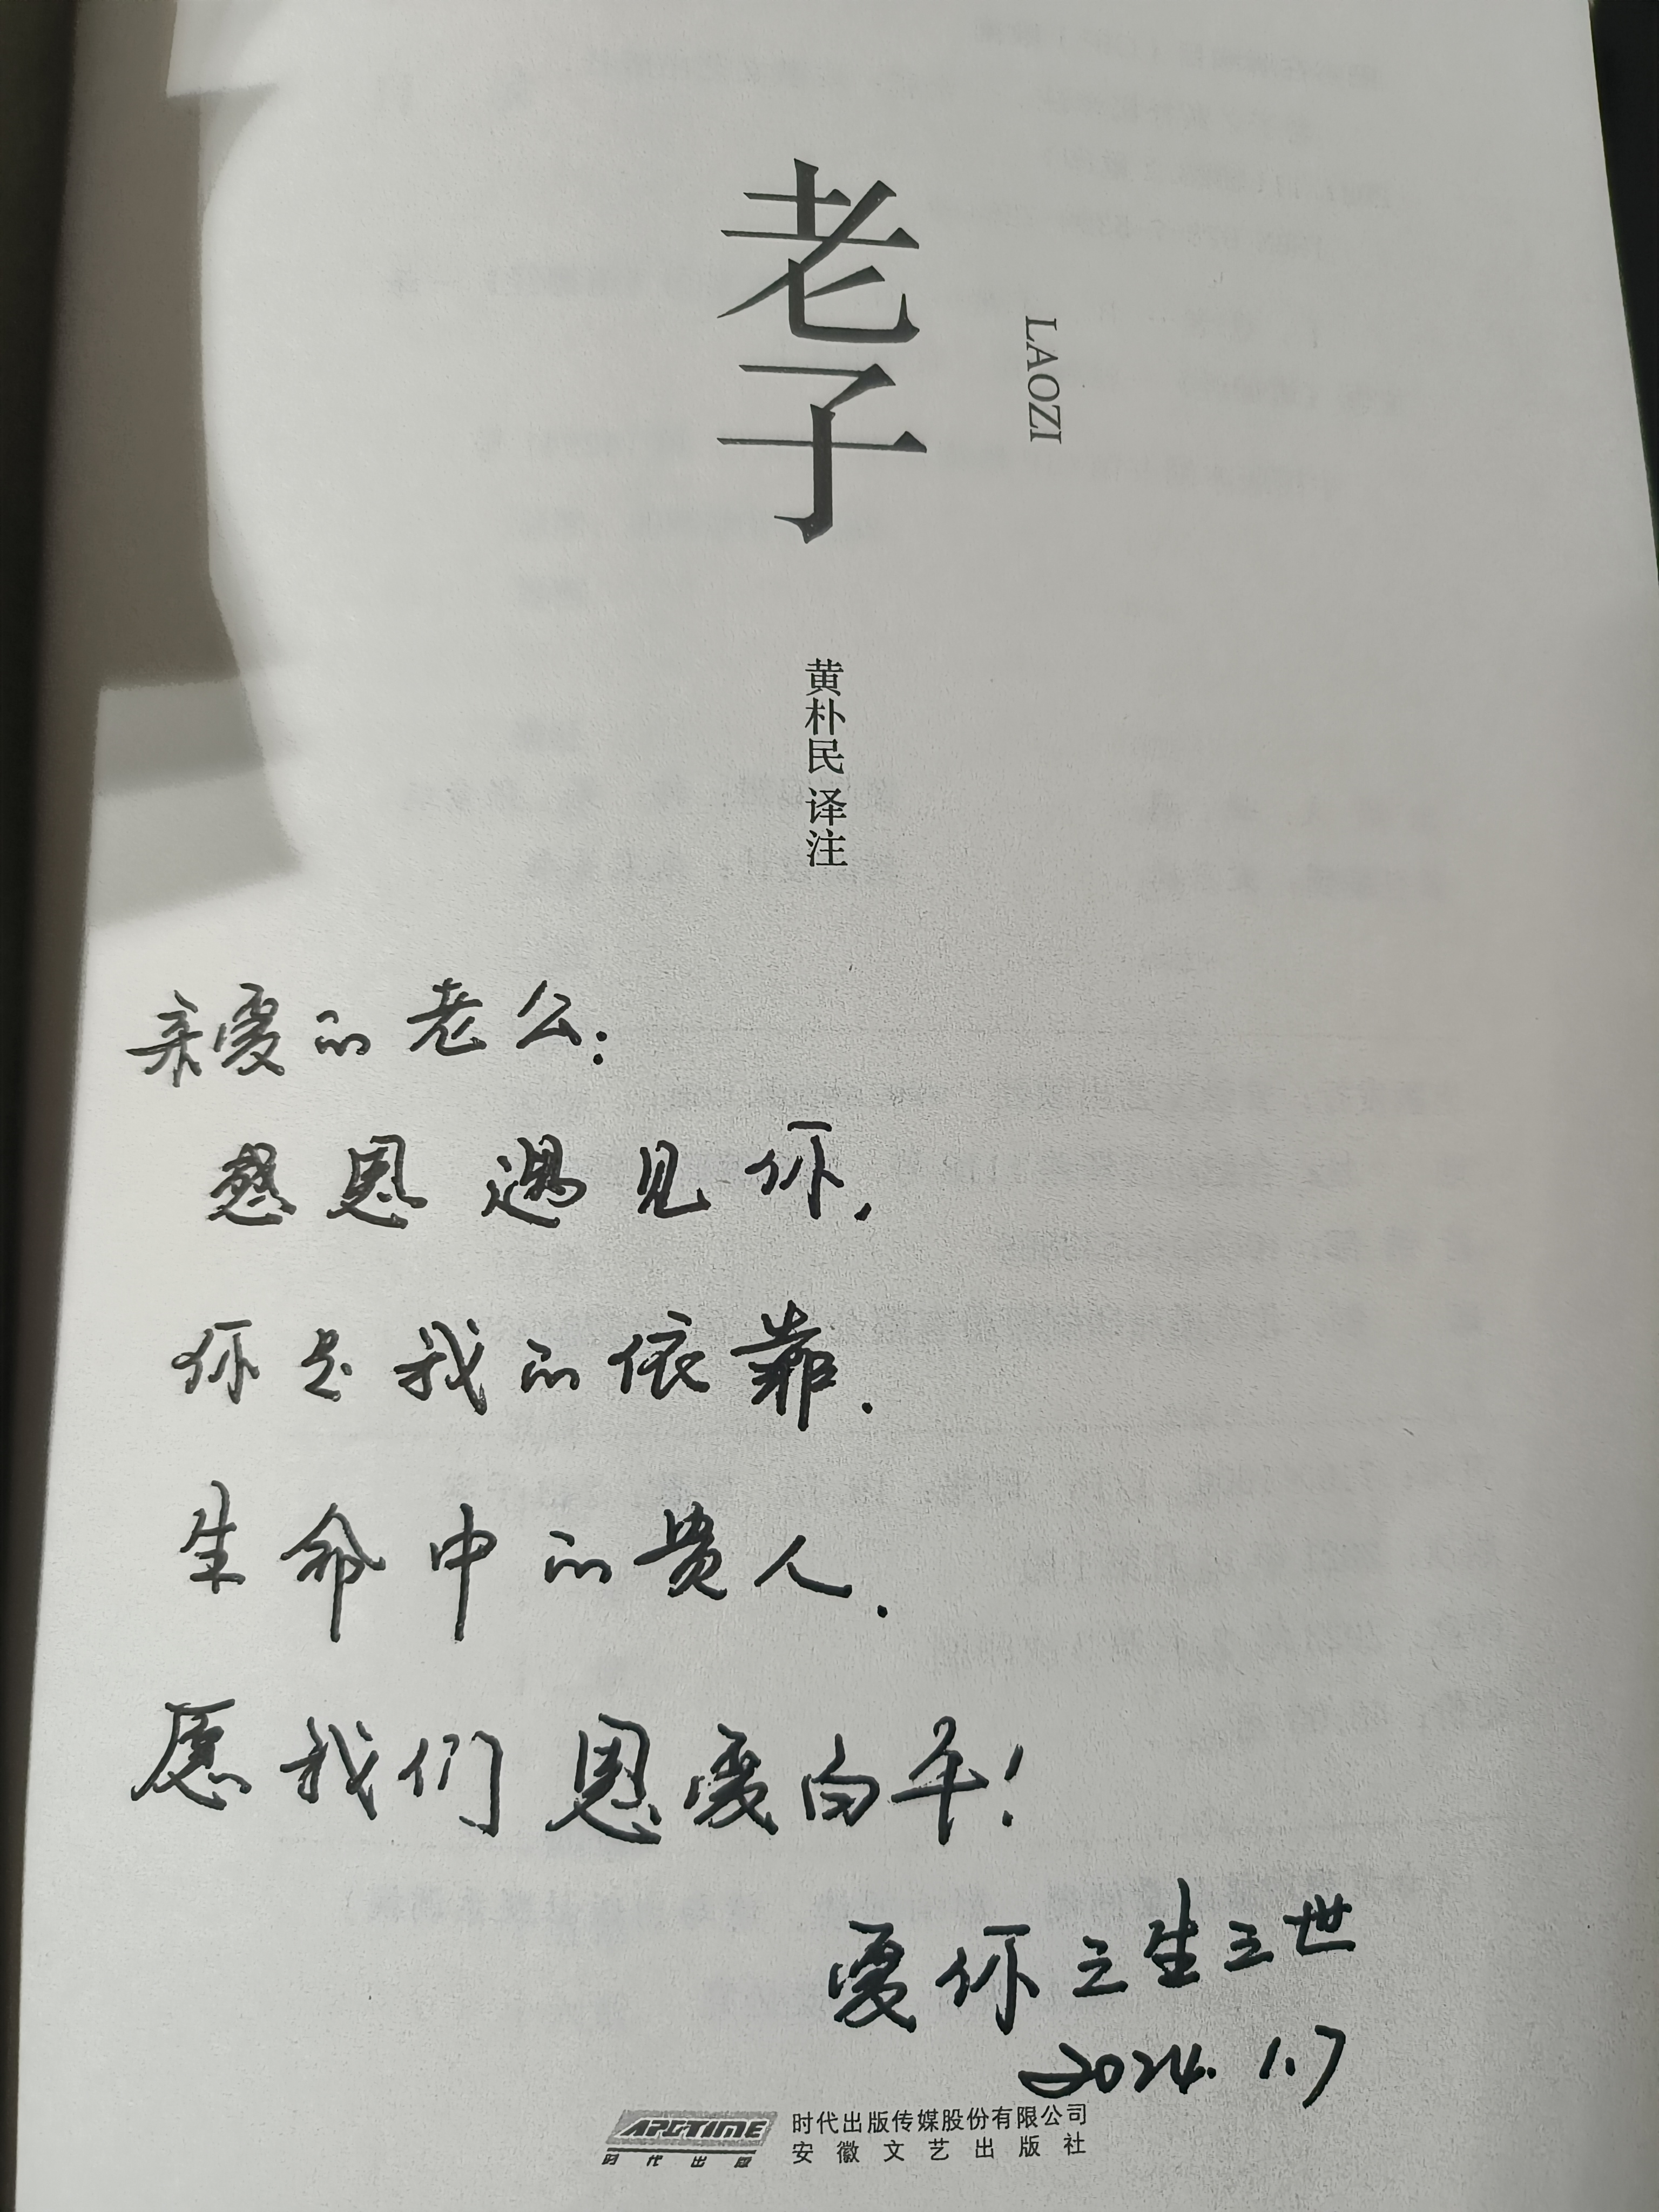 老子
LAOZI
黄朴民 译注
亲爱的老公:
感恩遇见你,
你是我的依靠.
生命中的贵人.
愿我们恩爱白年!
爱你三生三世
2024.1.7
APGTIME
时代出版
时代出版传媒股份有限公司
安徽文艺出版社